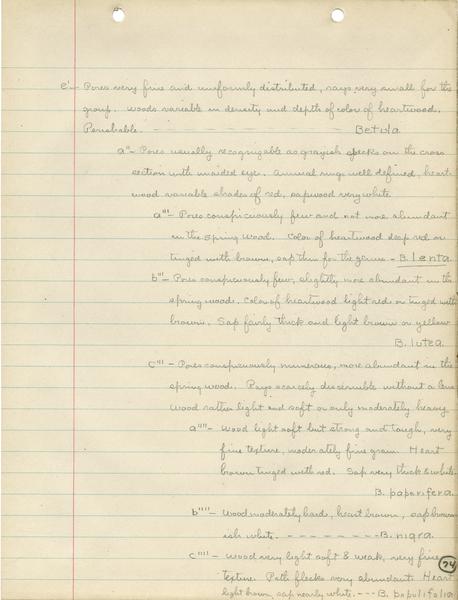 e'- Pores very fine and uniformly distributed, rays very small for the
group. Woods variable in density and depth of color of heartwood.
Perishable. - - - - - - - - - - - - - Betula
a"- Pores usually recognizable as grayish specks on the cross
section with unaided eye. Annual rings well defined, heart-
wood variable shades of red, sapwood very white
a'''- Pores conspicuously few and not more abundant
in the spring wood. Color of heartwood deep red or
tinged with brown, sap thin for the genus - B. lenta
b'''- Pores conspicuously few, slightly more abundant in the
spring wood. Color of heartwood light red or tinged with
brown. Sap fairly thick and light brown or yellow
B. lutea.
c''' - Pores conspicuously numerous, more abundant in the
spring wood. Rays scarcely discernible without a lens
Wood rather light and soft or only moderately heavy
a'''' - Wood light soft but strong and tough, very
fine texture, moderately fine grain. Heart
brown tinged with red. Sap very thick & white.
B. paparifera.
b''''- Wood moderately hard, heart brown, sap brown-
ish white. - - - - - - - - B. nigra.
c'''' - Wood very light soft & weak, very fine
texture. Pith flecks very abundant. Heart
light brown, sap nearly white. - - - B. populifolia
74